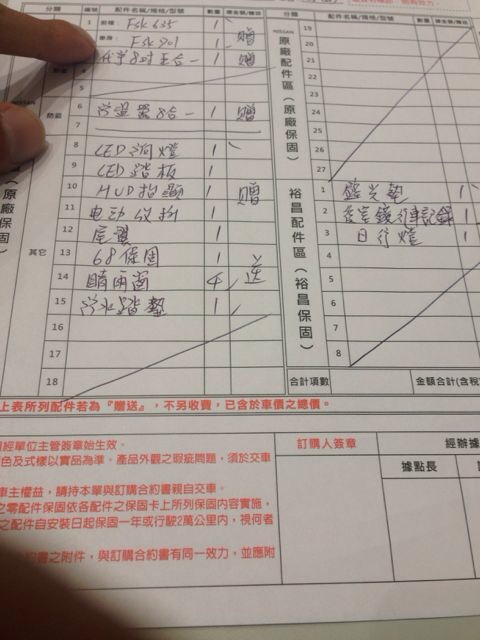 分類 編號 配件名稱/規格/型號 數量
1 前檔: FSK 635 1
車身: FSK 901 1 贈
5
防盜 6 1 贈
7
8 LED 1
9 LED踏板 1
10 HUD抬顯 1 贈
11 電动收折 1
其它 12 尾翼 1
13 68保固 1
14 晴雨窗 4 送
15 1
16
17
18
NISSAN
(原廠保固)
分類 配件名稱/規格/型號 數量
NISSAN 原廠配件區(原廠保固)
19
20
21
22
23
24
25
26
27
裕昌配件區(裕昌保固)
1 1
2 1
3 日行燈 1
4
5
6
7
8
合計項數 金額合計(含稅
上表所列配件若為『贈送』，不另收費，已含於車價之總價。
經單位主管簽章始生效。
色及式樣以實品為準。產品外觀之瑕疵問題，須於交車
車主權益，請持本單與訂購合約書親自交車。
之零配件保固依各配件之保固卡上所列保固內容實施，
之配件自安裝日起保固一年或行駛2萬公里內，視何者
約書之附件，與訂購合約書有同一效力，並應附
訂購人簽章 經辦據
據點長